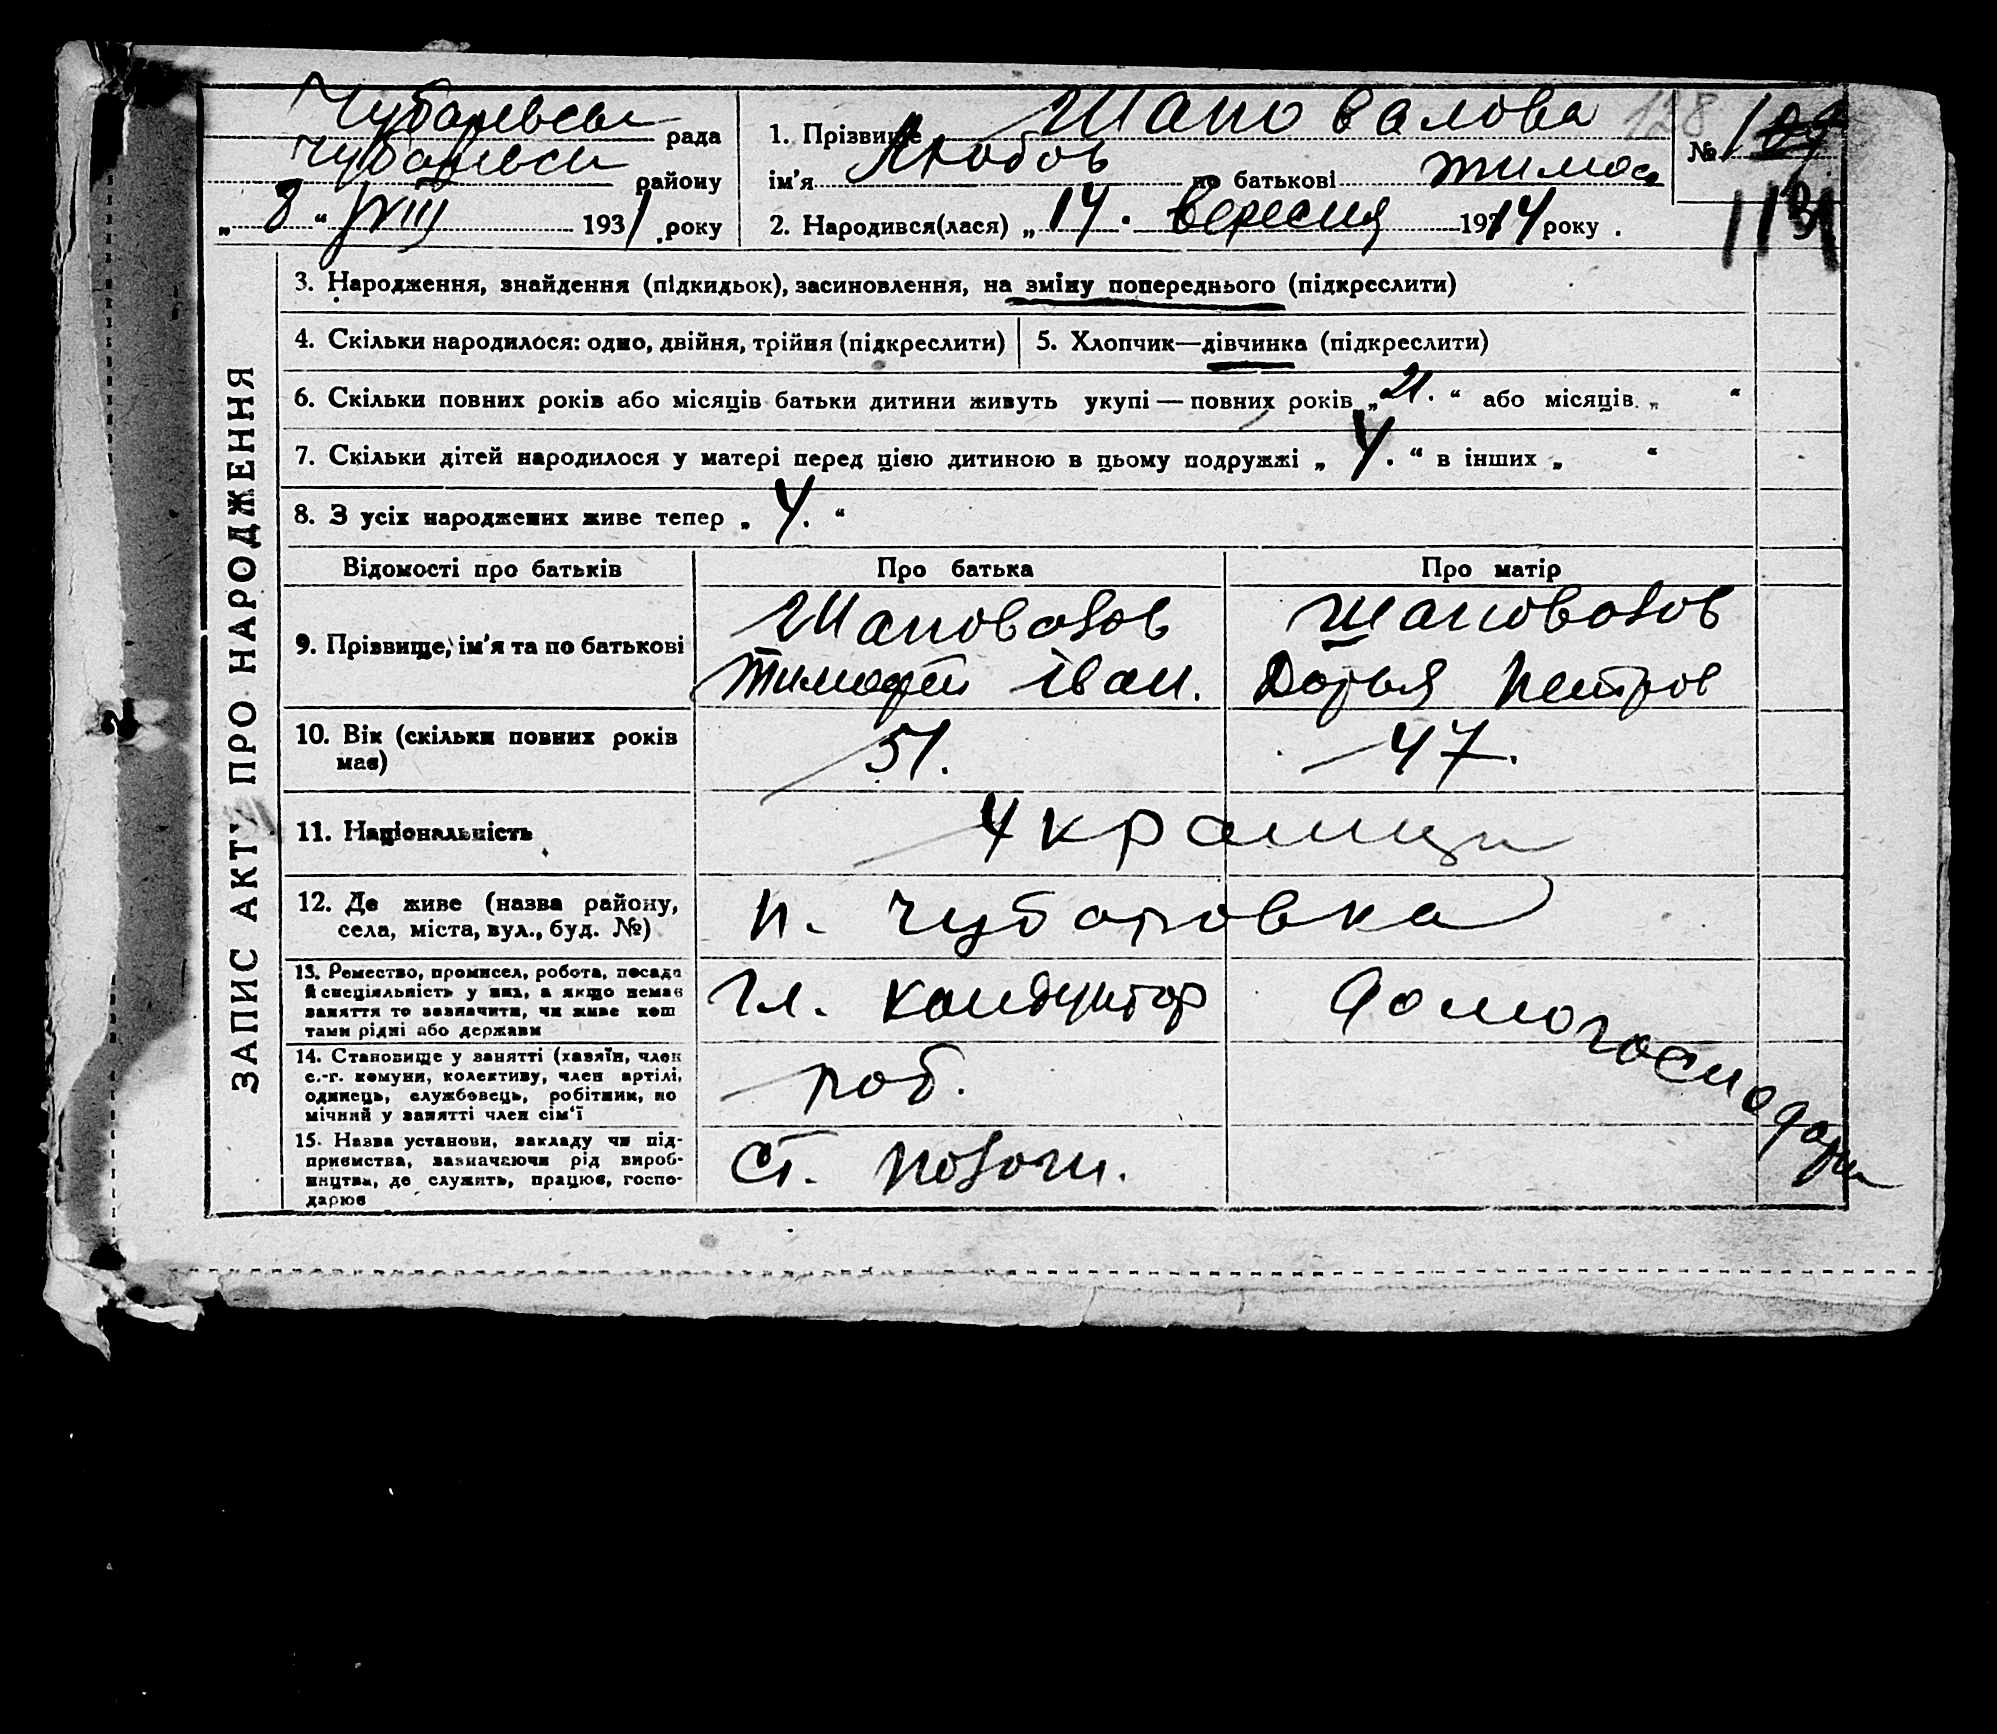 Чубарівськ рада
Чубарівськ району
„ 8 “ VIII 1931 року
1. Прізвище Шаповалова 128
ім'я Любов по батькові Тимоф
2. Народився(лася) „ 14 . вересня 1914 року .
№ 109
1131
ЗАПИС АКТУ ПРО НАРОДЖЕННЯ
3. Народження, знайдення (підкидьок), засиновлення, на зміну попереднього (підкреслити)
4. Скільки народилося: одно, двійня, трійня (підкреслити)
5. Хлопчик—дівчинка (підкреслити)
6. Скільки повних років або місяців батьки дитини живуть укупі — повних років „ 21. “ або місяців „ “
7. Скільки дітей народилося у матері перед цією дитиною в цьому подружжі „ 4. “ в інших „ “
8. З усіх народжених живе тепер „ 4. “
Відомості про батьків
Про батька
Про матір
9. Прізвище, ім'я та по батькові
Шаповалов
Тимофей Іван.
Шаповалов
Дарья Петров
10. Вік (скільки повних років
має)
51.
47.
11. Національність
Українци
12. Де живе (назва району,
села, міста, вул., буд. №)
п. Чубаровка
13. Ремество, промисел, робота, посада
й спеціяльність у них, а якщо немає
заняття то зазначити, чи живе кош
тами рідні або держави
гл. кондуктор
домогосподарка
14. Становище у занятті (хазяїн, член
с.-г. комуни, колективу, член артілі,
одинець, службовець, робітник, по
мічний у занятті член сім'ї
роб.
15. Назва установи, закладу чи під-
приємства, зазначаючи рід вироб-
ництва, де служить, працює, госпо-
дарює
ст. Пологи.